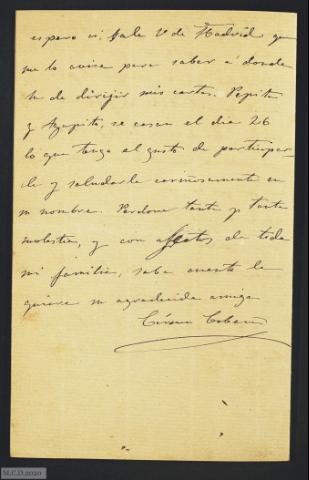 espero si sale V. de Madrid que
me lo avise para saber á donde
he de dirijir mis cartas. Pepita
y Agapito, se casan el dia 26
lo que tengo el gusto de participar-
le y saludarle cariñosamente en
su nombre. Perdone tanta y tanta
molestia, y con afectos de toda
mi familia, sabe cuanto le
quiere su agradecida amiga
M.C.D. 2020